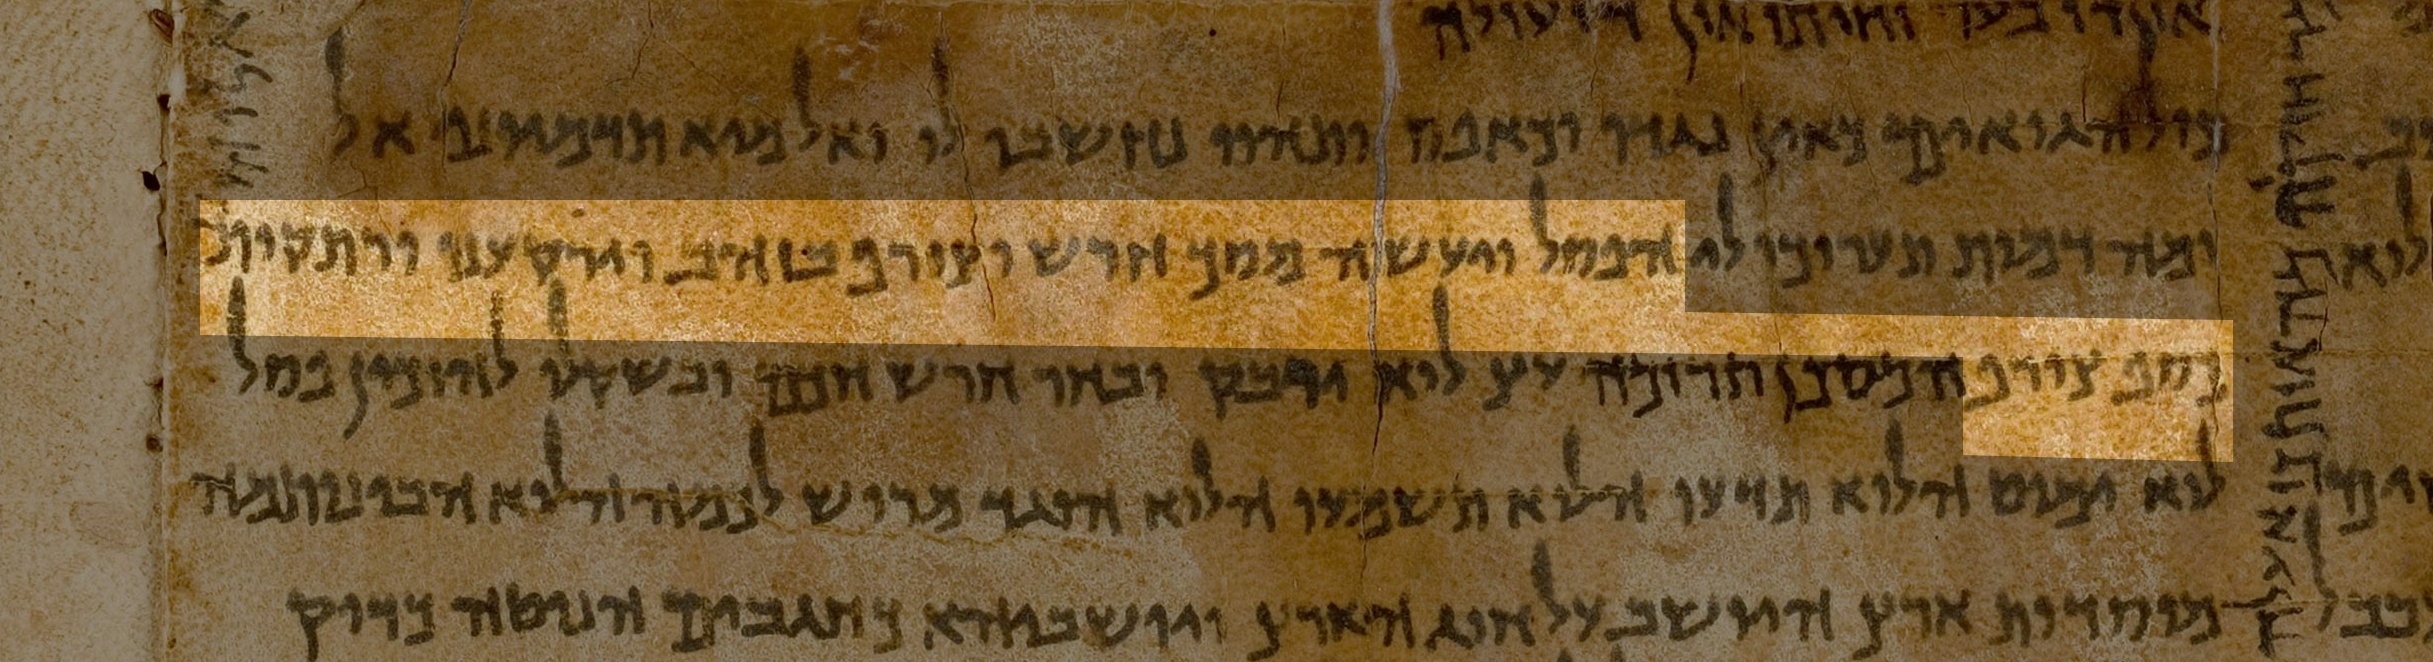 אין די בער וחיתו אין די עולה
כול הגואים כאין נגדו וכאפס ותהוו נחשבו לו ואל מיא תדמיוני אל
ומה דמות תערוכו לי הפסל ויעשה מסך חרש וצורף בזהב וירקענו ורתקות
כסף צורף המסכן תרומה עץ לוא ירקב יבחר חרש חכם ובקש לו להכין פסל
לוא ימוט הלוא תדעו הלוא תשמעו הלוא הוגד מרוש לכמה הלוא הבינותמה
מוסדות ארץ היושב על חוג הארץ ויושביהא כחגבים הנוטה כדוק